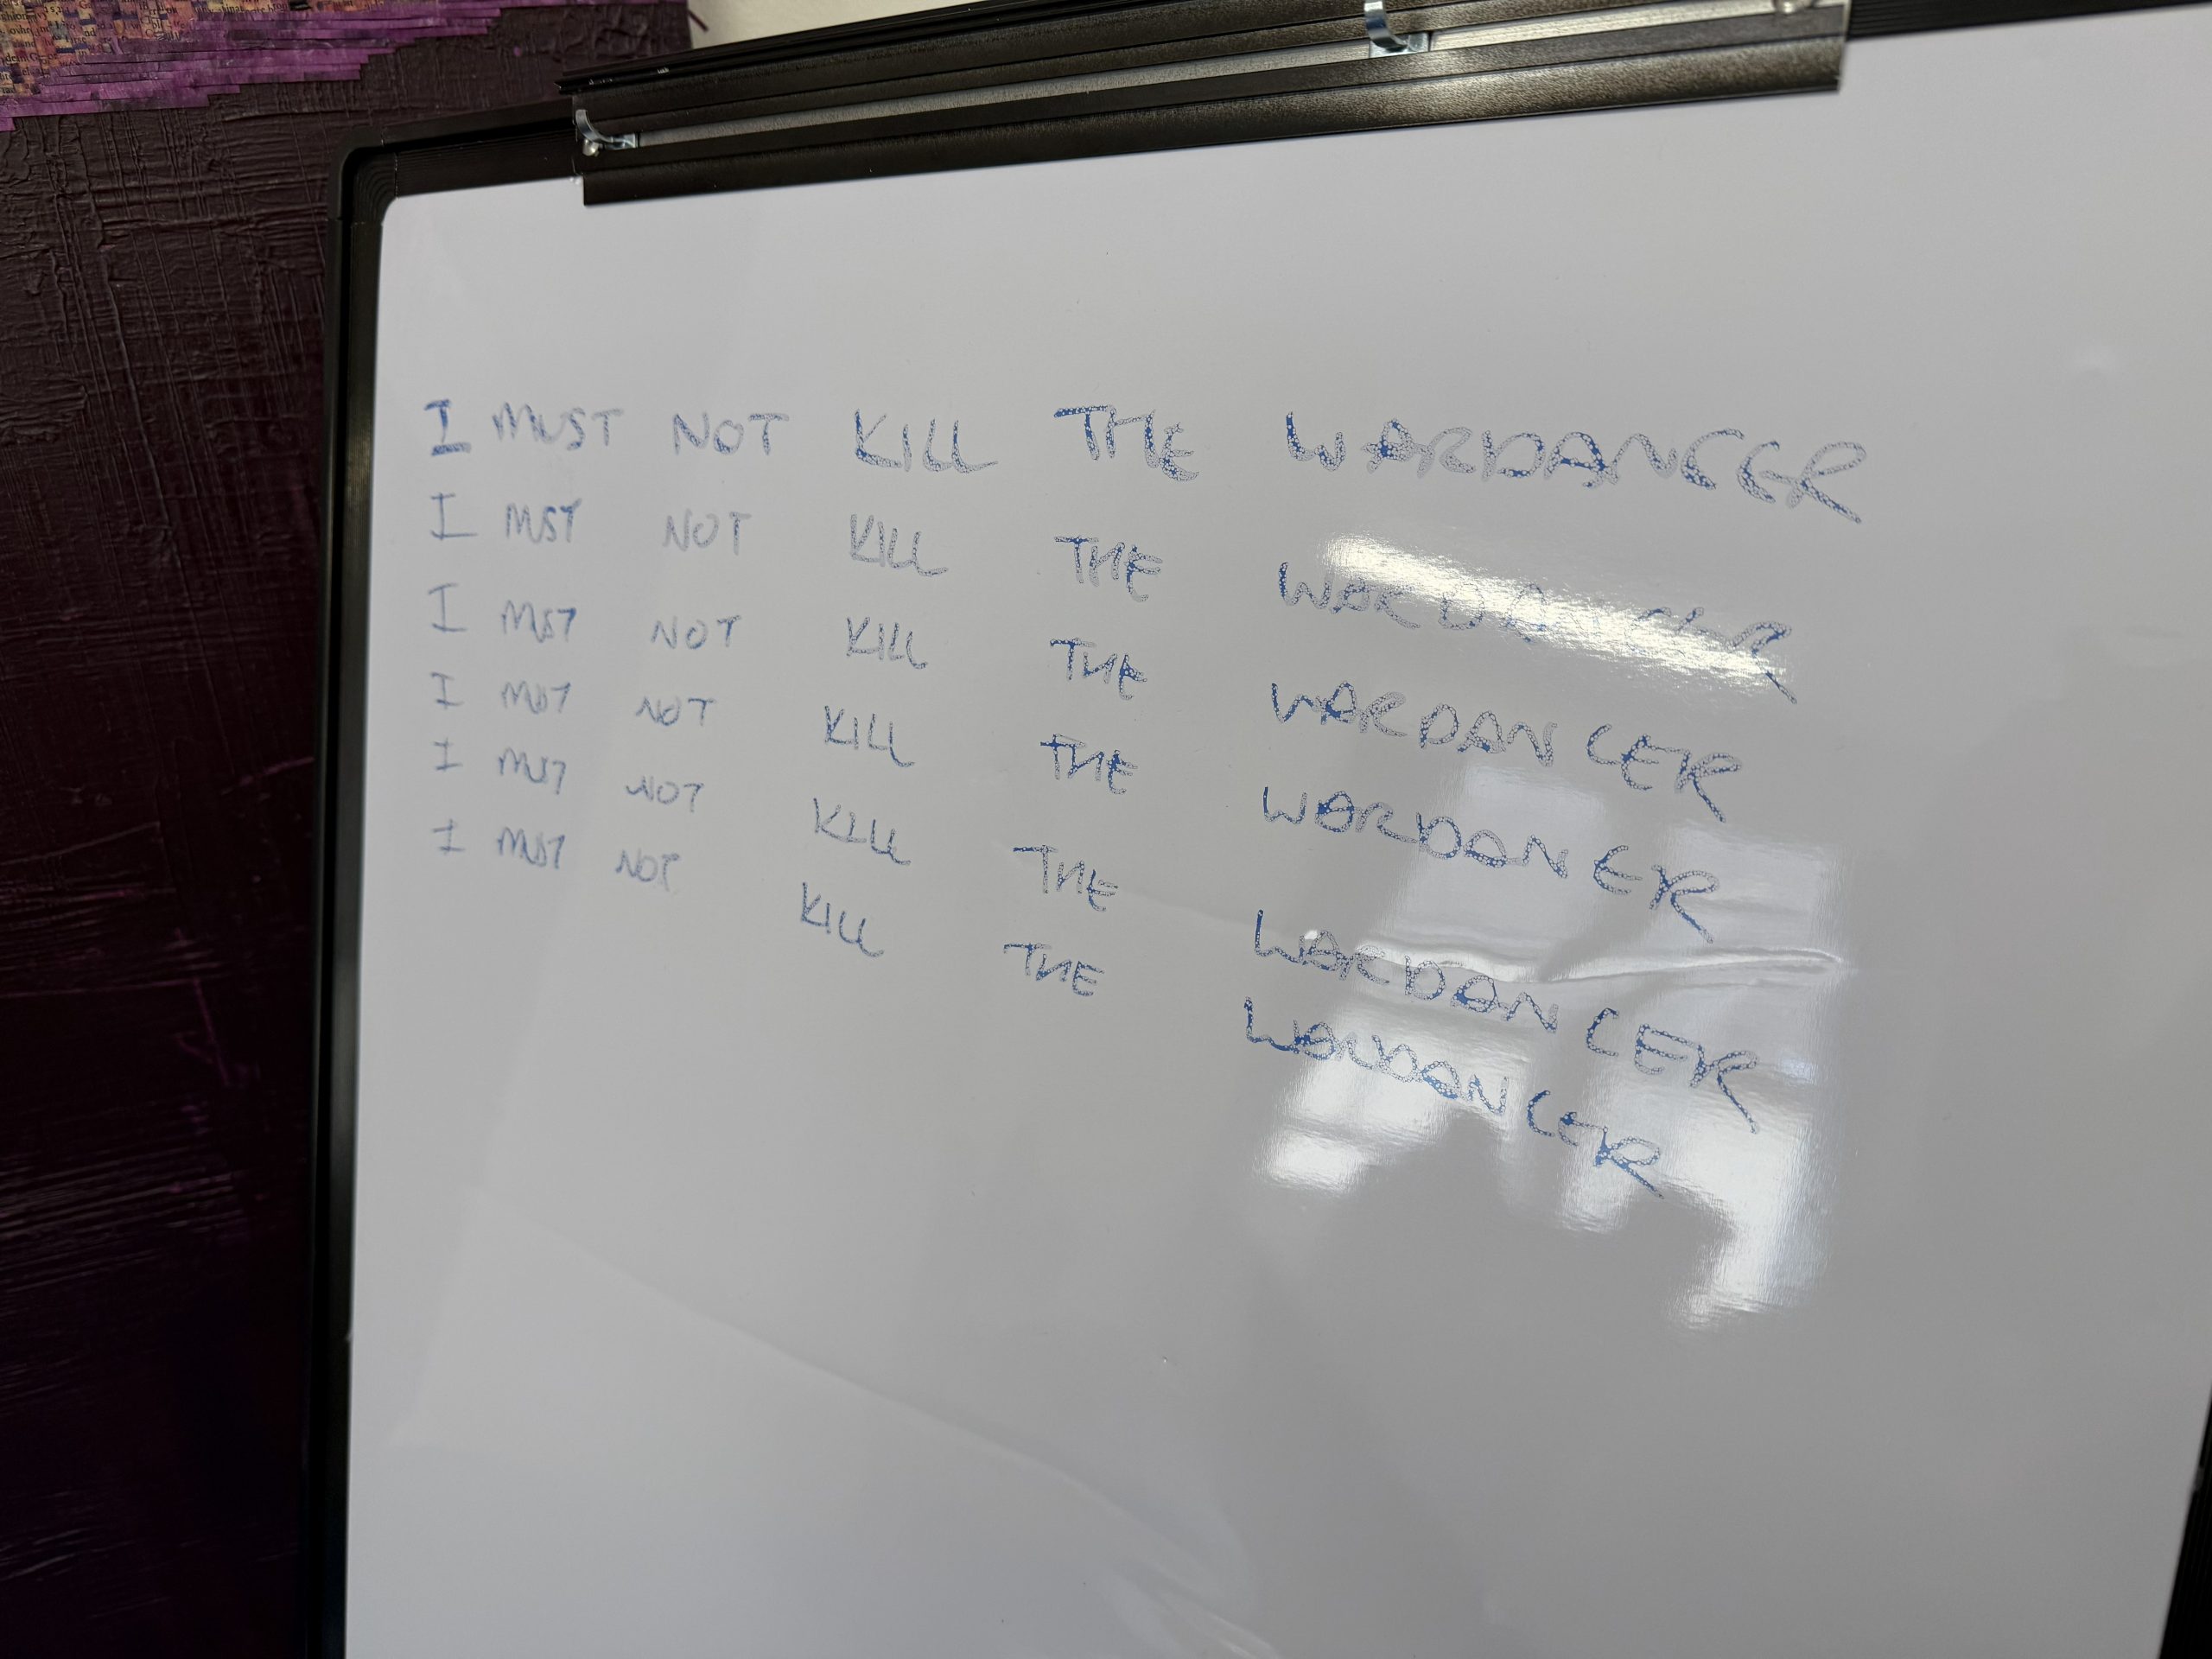 I MUST NOT KILL THE WARDANCER
I MUST NOT KILL THE WARDANCER
I MUST NOT KILL THE WARDANCER
I MUST NOT KILL THE WARDANER
I MUST NOT KILL THE WARDANCER
I MUST NOT KILL THE WARDANCER